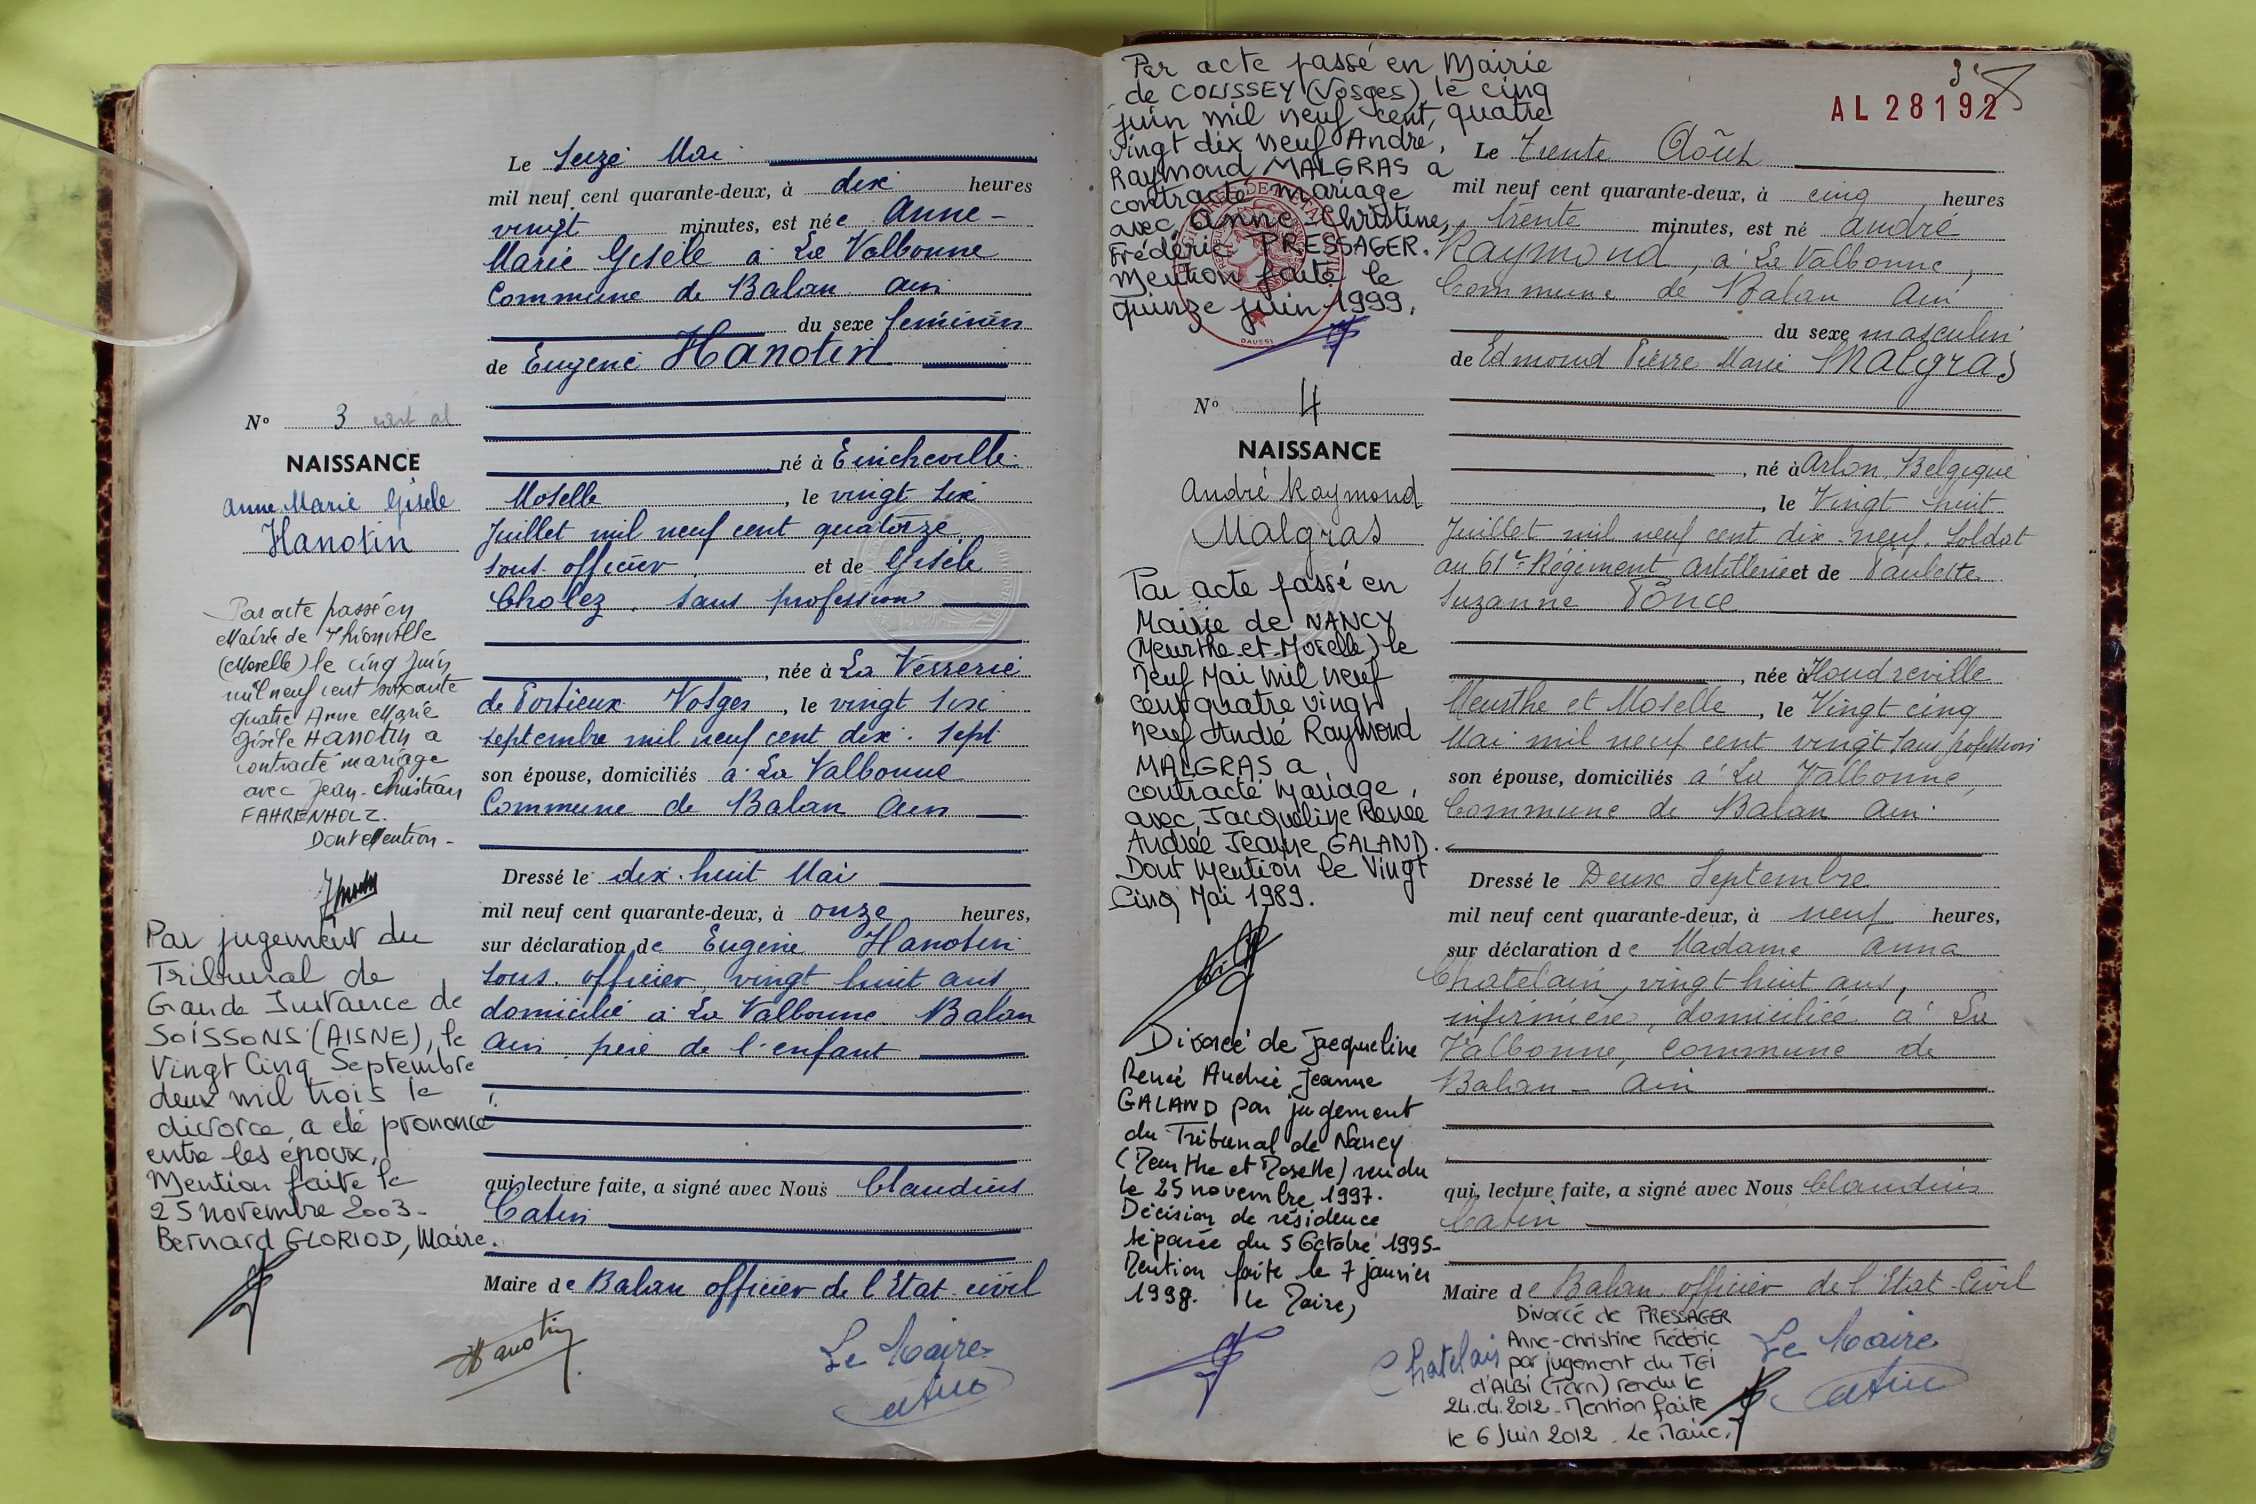 Le Seize Mai
mil neuf cent quarante-deux, à dix heures
vingt minutes, est née Anne-
Marie Gisèle à La Valbonne
Commune de Balan Ain
du sexe féminin
de Eugène Hanotin
né à Eincheville
Moselle, le vingt six
Juillet mil neuf cent quatorze
sous officier et de Gisèle
Cholez, sans profession
, née à La Verrerie
de Portieux Vosges, le vingt six
septembre mil neuf cent dix-sept
son épouse, domiciliés à La Valbonne
Commune de Balan Ain
Dressé le dix-huit Mai
mil neuf cent quarante-deux, à onze heures,
sur déclaration de Eugène Hanotin
sous-officier, vingt huit ans
domicilié à La Valbonne Balan
Ain, père de l'enfant
qui, lecture faite, a signé avec Nous Claudius
Catin
Maire de Balan officier de l'Etat-civil
Hanotin
Le Maire
Catin
N° 3
NAISSANCE
Anne Marie Gisèle
Hanotin
Par acte passé en
Mairie de Thionville
(Moselle) le cinq Juin
mil neuf cent soixante
quatre Anne Marie
Gisèle HANOTIN a
contracté mariage
avec Jean-Christian
FAHRENHOLZ.
Dont Mention -
Par jugement du
Tribunal de
Grande Instance de
SOISSONS (AISNE), le
Vingt Cinq Septembre
deux mil trois le
divorce a été prononcé
entre les époux,
Mention faite le
25 novembre 2003-
Bernard GLORIOD, Maire.
Par acte passé en Mairie
de COUSSEY (Vosges) le cinq
juin mil neuf cent, quatre
vingt dix neuf André,
Raymond MALGRAS a
contracté mariage
avec Anne-Christine,
Frédéric PRESSAGER.
Mention faite le
quinze juin 1999.
N° 4
NAISSANCE
André Raymond
Malgras
Par acte passé en
Mairie de NANCY
(Meurthe-et-Moselle) le
Neuf Mai mil neuf
cent quatre vingt
neuf André Raymond
MALGRAS a
contracté mariage
avec Jacqueline Renée
Andrée Jeanne GALAND.
Dont Mention le Vingt
Cinq Mai 1989.
Divorcé de Jacqueline
Renée Andrée Jeanne
GALAND par jugement
du Tribunal de Nancy
(Meurthe et Moselle) rendu
le 25 novembre 1997.
Décision de résidence
séparée du 5 Octobre 1995-
Mention faite le 7 janvier
1998. le Maire,
AL 28192
Le Trente Août
mil neuf cent quarante-deux, à cinq heures
trente minutes, est né André
Raymond, à La Valbonne,
Commune de Balan Ain
du sexe masculin
de Edmond Pierre Marie Malgras
, né à Arlon, Belgique
, le Vingt huit
Juillet mil neuf cent dix-neuf, Soldat
au 61e Régiment Artillerie et de Paulette
Suzanne Ponce
, née à Houdreville
Meurthe et Moselle, le Vingt cinq
Mai mil neuf cent vingt sans profession
son épouse, domiciliés à La Valbonne,
Commune de Balan Ain
Dressé le Deux Septembre
mil neuf cent quarante-deux, à neuf heures,
sur déclaration de Madame Anna
Chatelain, vingt huit ans,
infirmière, domiciliée à La
Valbonne, commune de
Balan - Ain
qui, lecture faite, a signé avec Nous Claudius
Catin
Maire de Balan officier de l'Etat-Civil
Chatelain
Le Maire
Catin
Divorcé de PRESSAGER
Anne-Christine Frédéric
par jugement du TGI
d'ALBI (Tarn) rendu le
24.04.2012 - Mention faite
le 6 Juin 2012 - Le Maire,